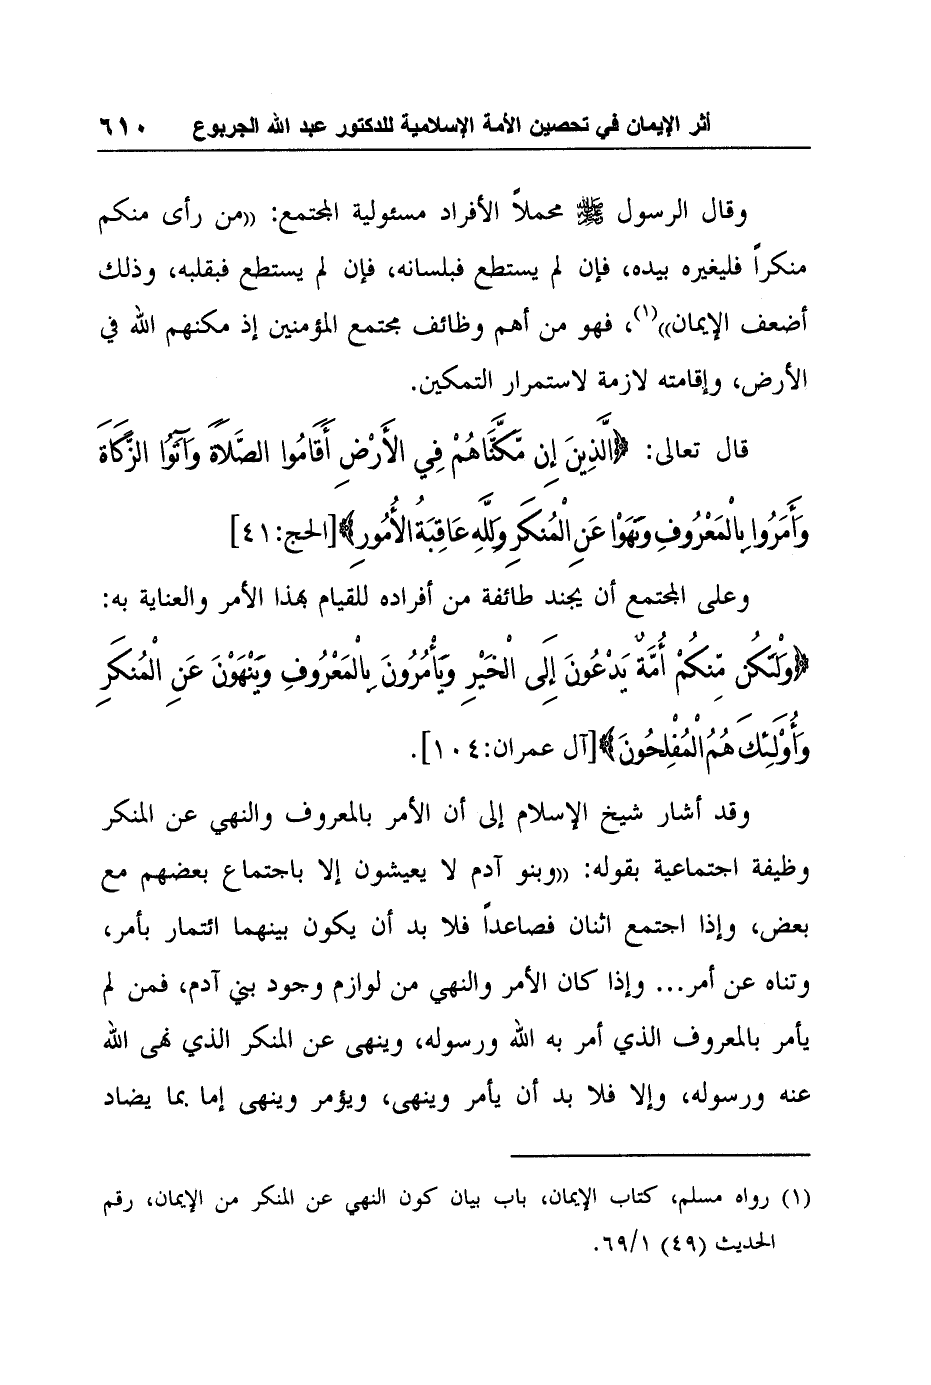 أثر الإيمان في تحصين الأمة الإسلامية للدكتور عبد الله الجربوع ٦١٠
وقال الرسول ﷺ محملاً الأفراد مسئولية المجتمع: ((من رأى منكم
منكراً فليغيره بيده، فإن لم يستطع فبلسانه، فإن لم يستطع فبقلبه، وذلك
أضعف الإيمان))(١)، فهو من أهم وظائف مجتمع المؤمنين إذ مكنهم الله في
الأرض، وإقامته لازمة لاستمرار التمكين.
قال تعالى: ﴿الَّذِينَ إِن مَّكَّنَّاهُمْ فِي الأَرْضِ أَقَامُوا الصَّلَاةَ وَآتَوُا الزَّكَاةَ
وَأَمَرُوا بِالْمَعْرُوفِ وَنَهَوْا عَنِ الْمُنكَرِ وَلِلَّهِ عَاقِبَةُ الأُمُورِ﴾[الحج:٤١]
وعلى المجتمع أن يجند طائفة من أفراده للقيام بهذا الأمر والعناية به:
﴿وَلْتَكُن مِّنكُمْ أُمَّةٌ يَدْعُونَ إِلَى الْخَيْرِ وَيَأْمُرُونَ بِالْمَعْرُوفِ وَيَنْهَوْنَ عَنِ الْمُنكَرِ
وَأُوْلَئِكَ هُمُ الْمُفْلِحُونَ﴾[آل عمران:١٠٤].
وقد أشار شيخ الإسلام إلى أن الأمر بالمعروف والنهي عن المنكر
وظيفة اجتماعية بقوله: ((وبنو آدم لا يعيشون إلا باجتماع بعضهم مع
بعض، وإذا اجتمع اثنان فصاعداً فلا بد أن يكون بينهما ائتمار بأمر،
وتناه عن أمر... وإذا كان الأمر والنهي من لوازم وجود بني آدم، فمن لم
يأمر بالمعروف الذي أمر به الله ورسوله، وينهى عن المنكر الذي نهى الله
عنه ورسوله، وإلا فلا بد أن يأمر وينهى، ويؤمر وينهى إما بما يضاد
(١) رواه مسلم، كتاب الإيمان، باب بيان كون النهي عن المنكر من الإيمان، رقم
الحديث (٤٩) ٦٩/١.